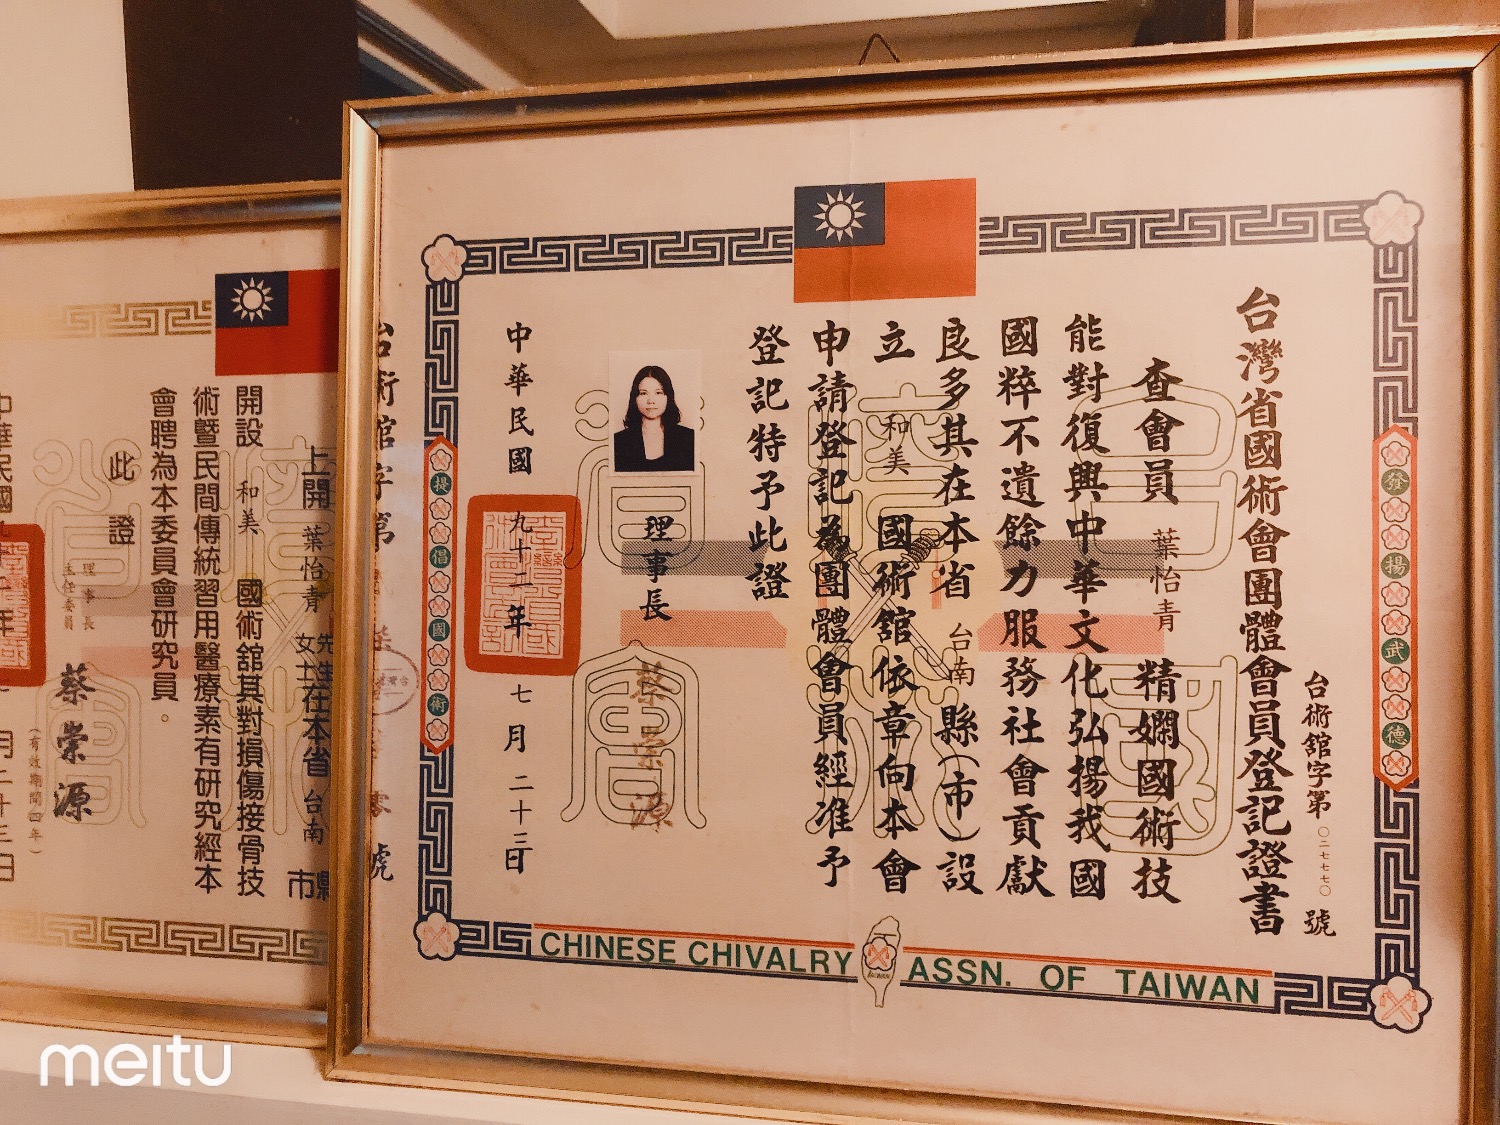 台灣省國術會團體會員登記證書
台術舘字第〇二七七七〇號
查會員 葉怡青 精嫻國術技
能對復興中華文化弘揚我國
國粹不遺餘力服務社會貢獻
良多其在本省 台南 縣（市）設
立 和美 國術舘依章向本會
申請登記為團體會員經准予
登記特予此證
理事長 蔡崇源
中華民國 九十二年 七月二十三日
發揚武德
提倡國術
CHINESE CHIVALRY ASSN. OF TAIWAN
台術舘字第
號
上開 葉怡青 先生女士在本省 台南 縣市
開設 和美 國術舘其對損傷接骨技
術暨民間傳統習用醫療素有研究經本
會聘為本委員會研究員。
此證
理事長
主任委員
蔡崇源
（有效期間四年）
中華民國
年
月二十三日
meitu